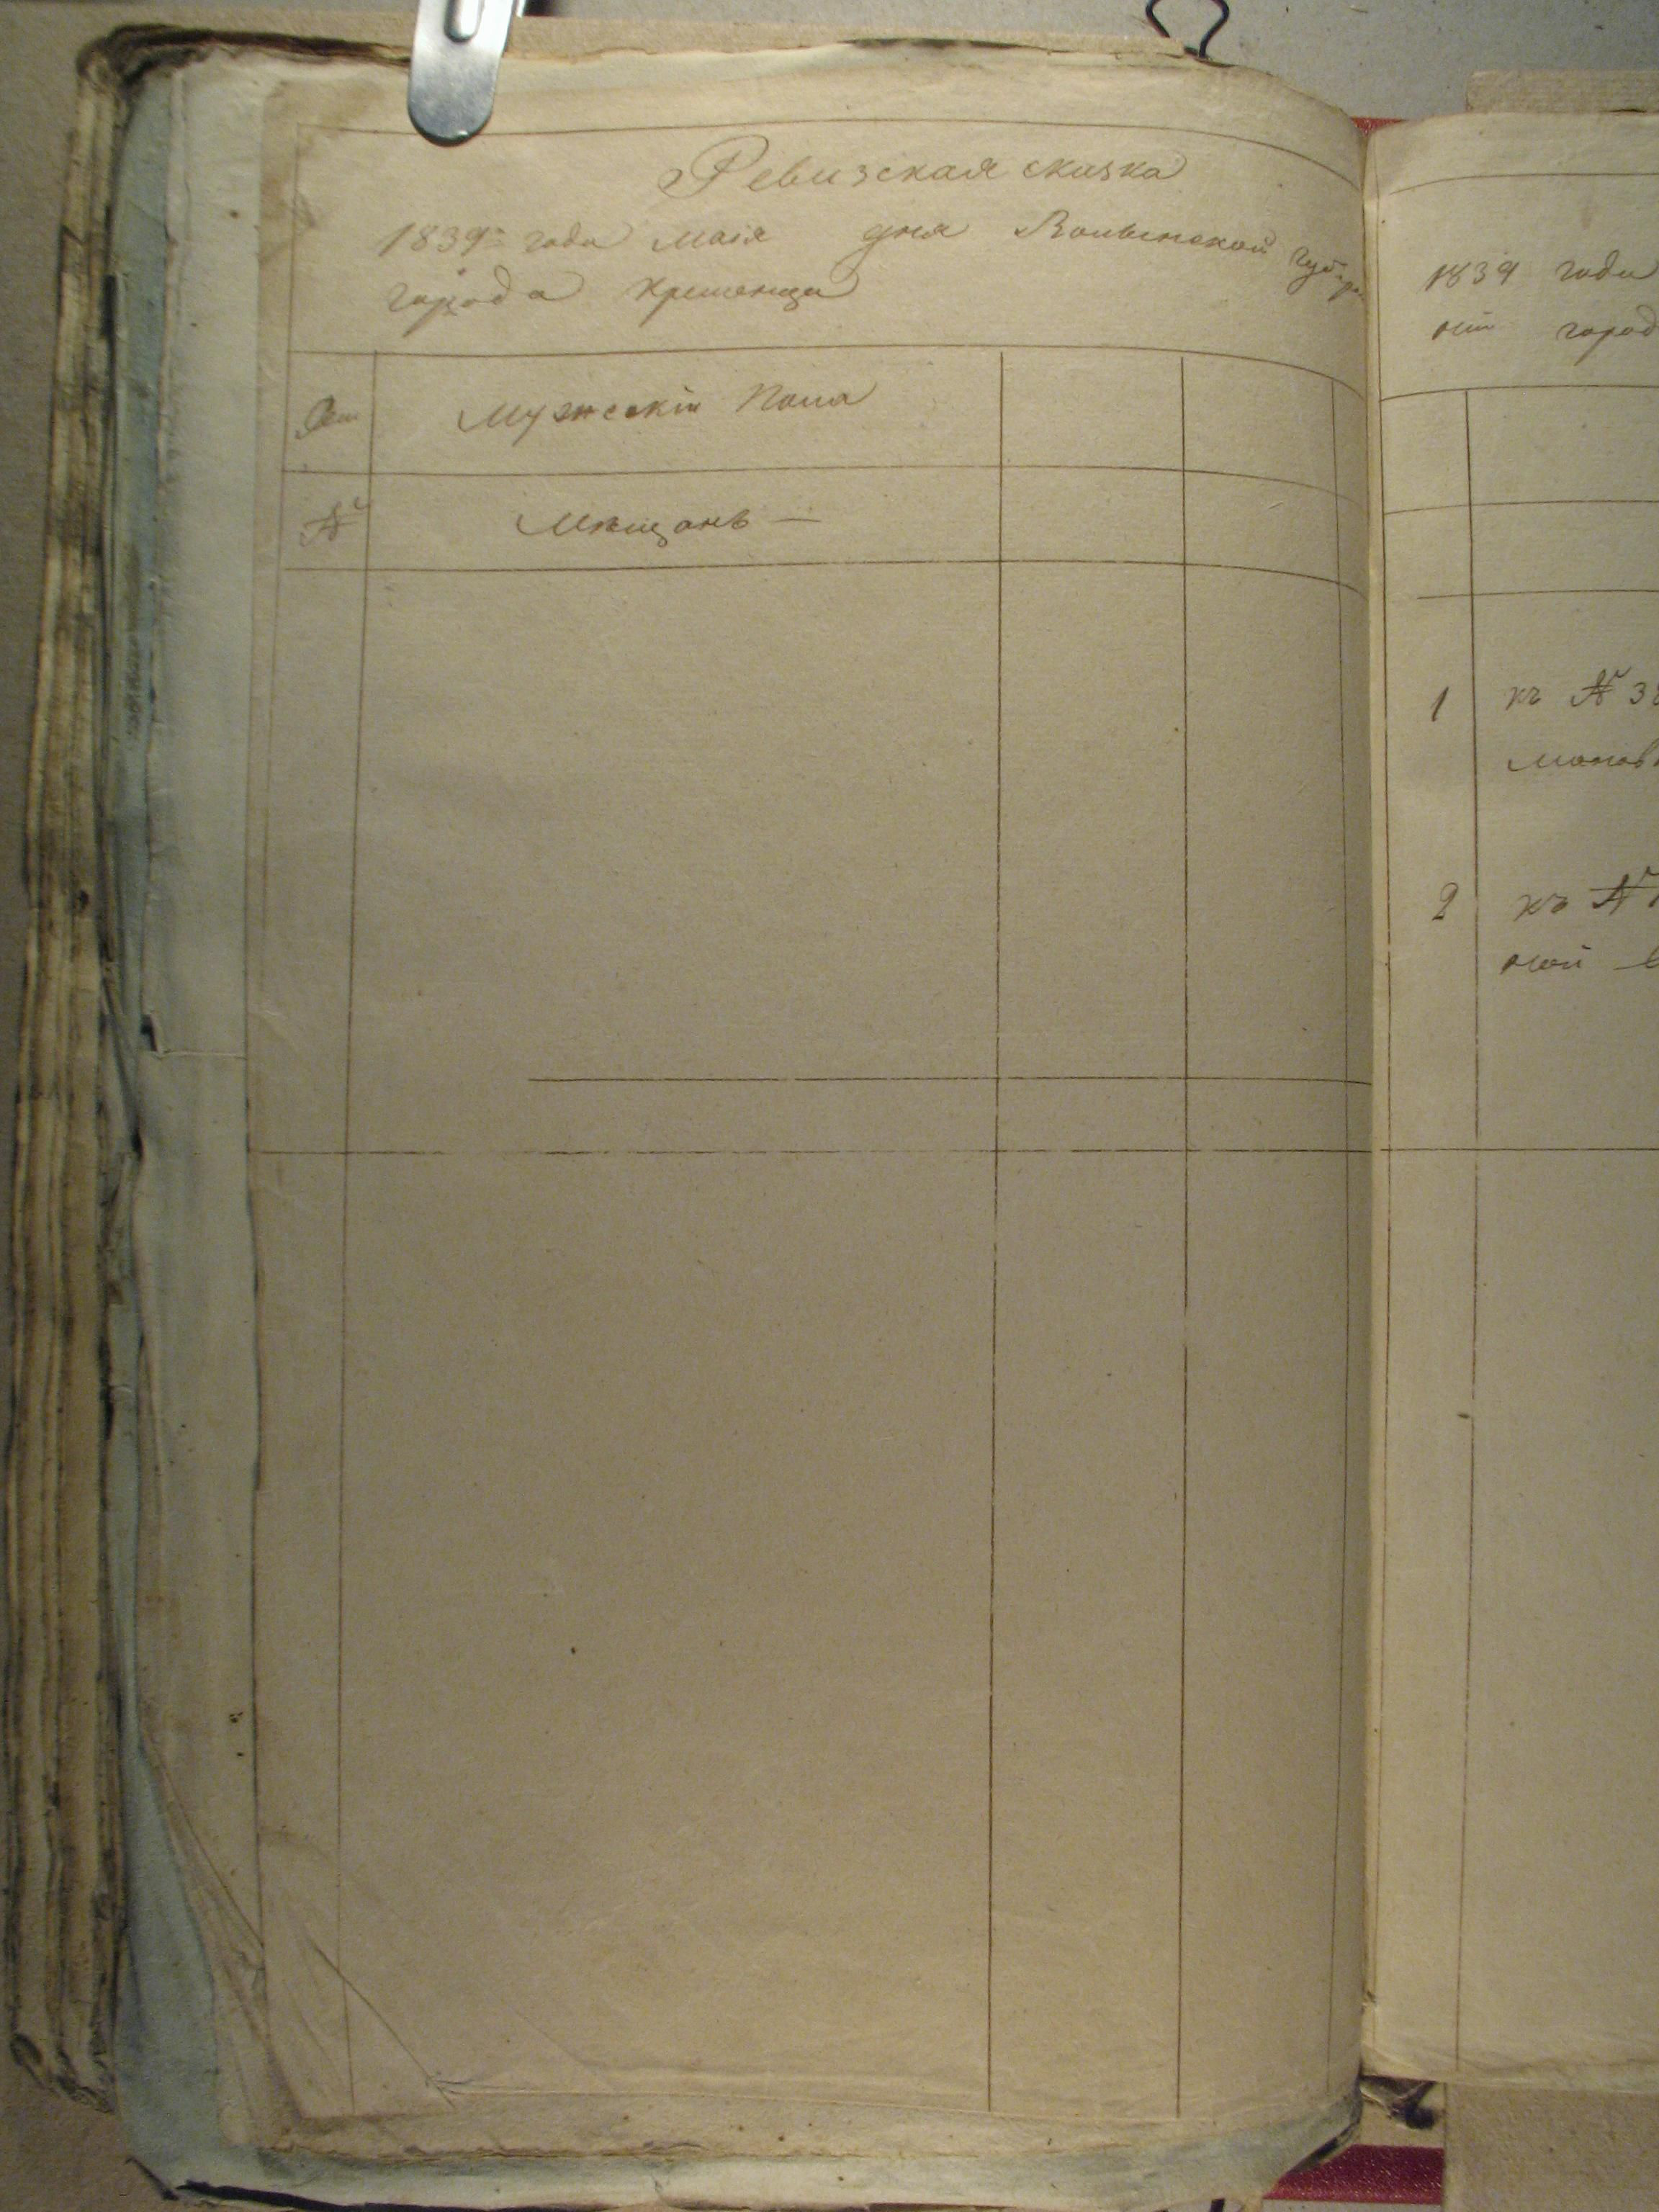 Ревизская сказка
1839 года Маія дня Волынской губер
города Кременца
Мужескій Пола
№ Мѣщанъ —
1839 года
город
1 къ № 38
2 къ №
ной